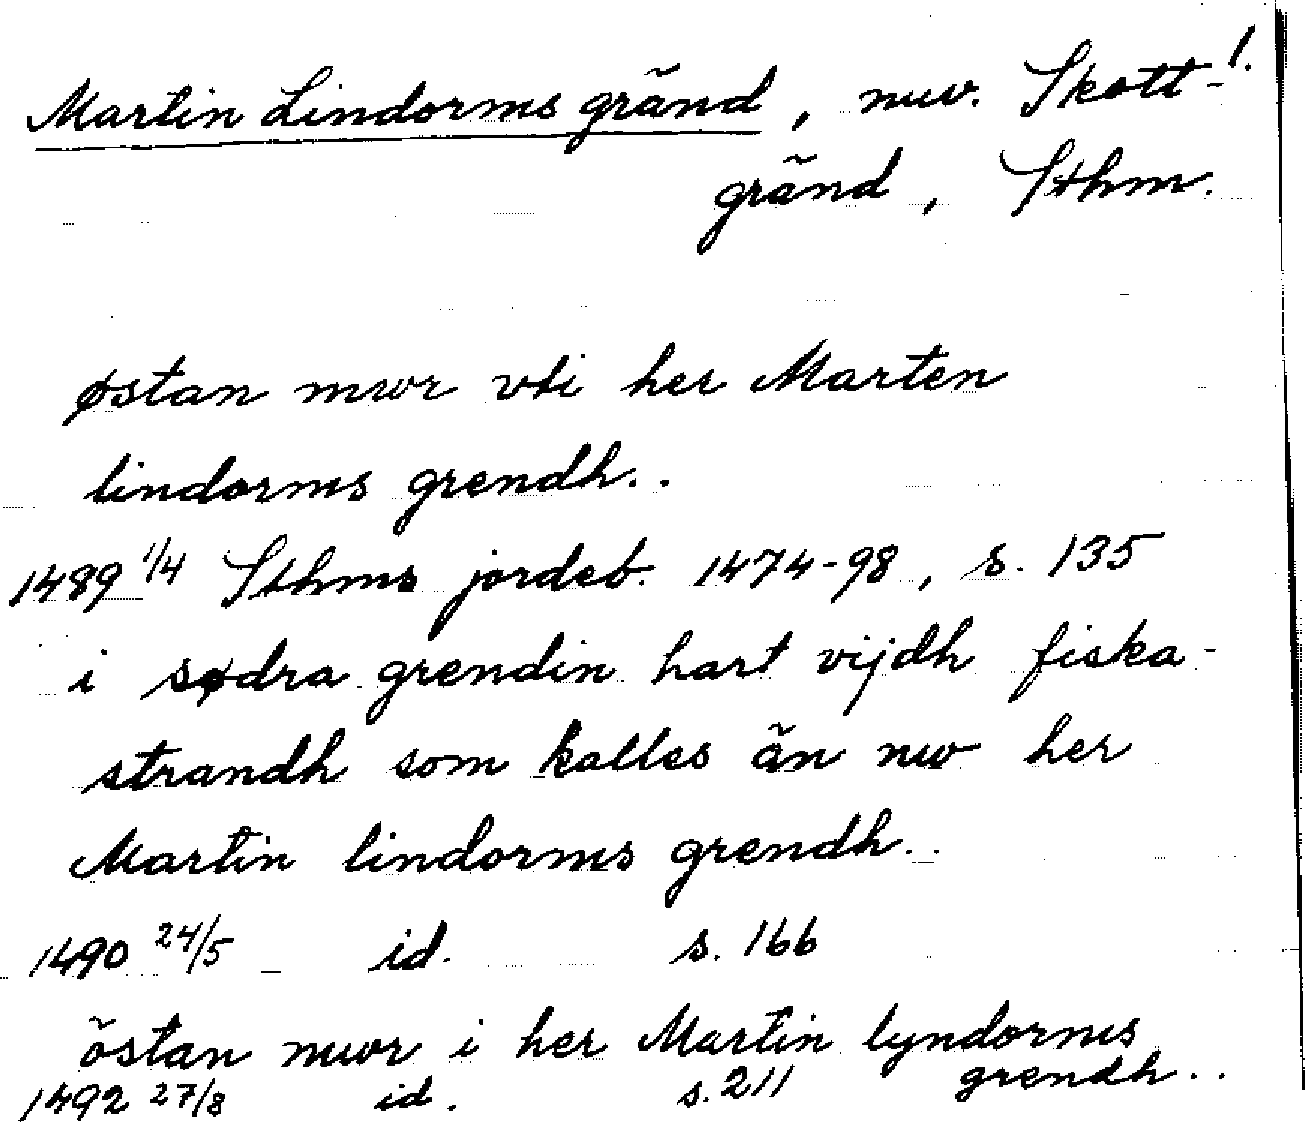 Martin Lindorms gränd, nuv. Skott- 1.
gränd, Sthm.
østan mwr vti her Marten
lindorms grendh..
1489 1/4 Sthms jordeb. 1474-98, s. 135
i sødra grendin hart vijdh fiska-
strandh som kalles än nw her
Martin lindorms grendh..
1490 24/5 id. s. 166
östan mwr i her Martin lyndorms
grendh..
1492 27/8 id. s. 211